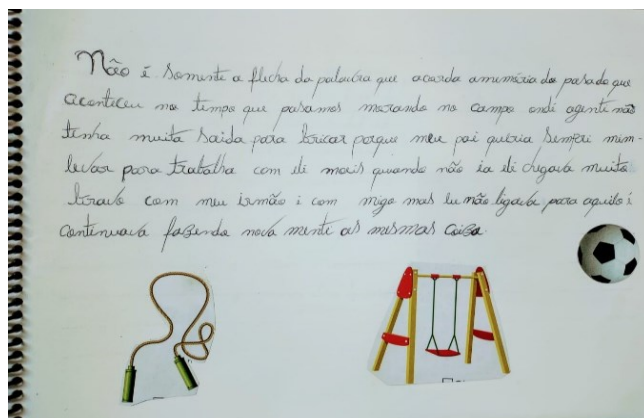 Não é somente a flecha da palavra que acorda a memória do pasado que
aconticeu no tempo que pasamos morando no campo ondi agenti não
tinha muita saida para bricar porque meu pai queria sempri mim-
levar para trabalha com eli mais quando não ia eli chegava muito
bravo com meu irmão i com migo mas eu não ligava para aquilo i
continuava fazendo nova menti as mesmas coisa